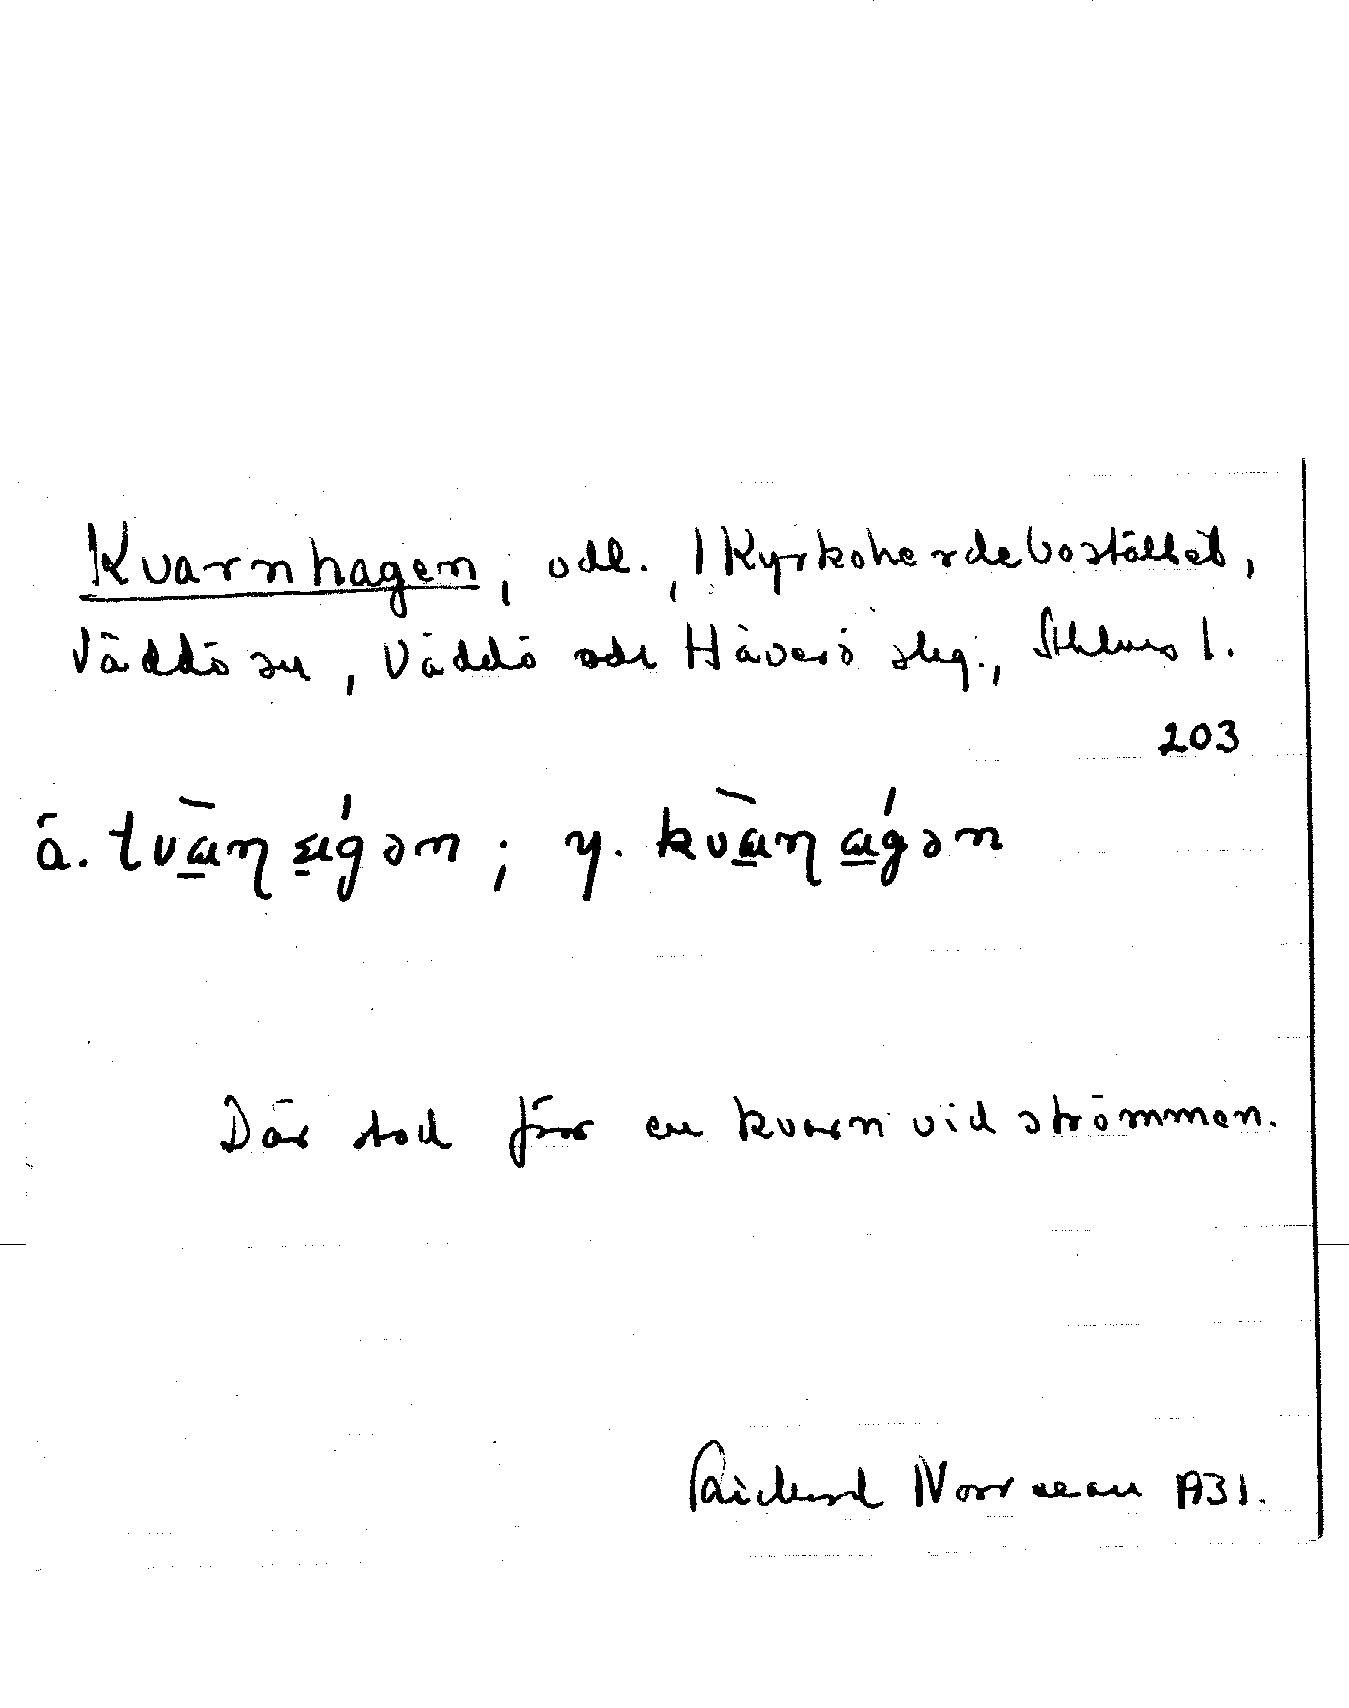 Kvarnhagen, odl., / Kyrkoherdebostället,
Väddö sn, Väddö och Häverö skg., Sthlms l.
203
ä. tvàṉ ágən; y. kvàṉ ágən
Där stod förr en kvarn vid strömmen.
Rickard Norrman 1931.